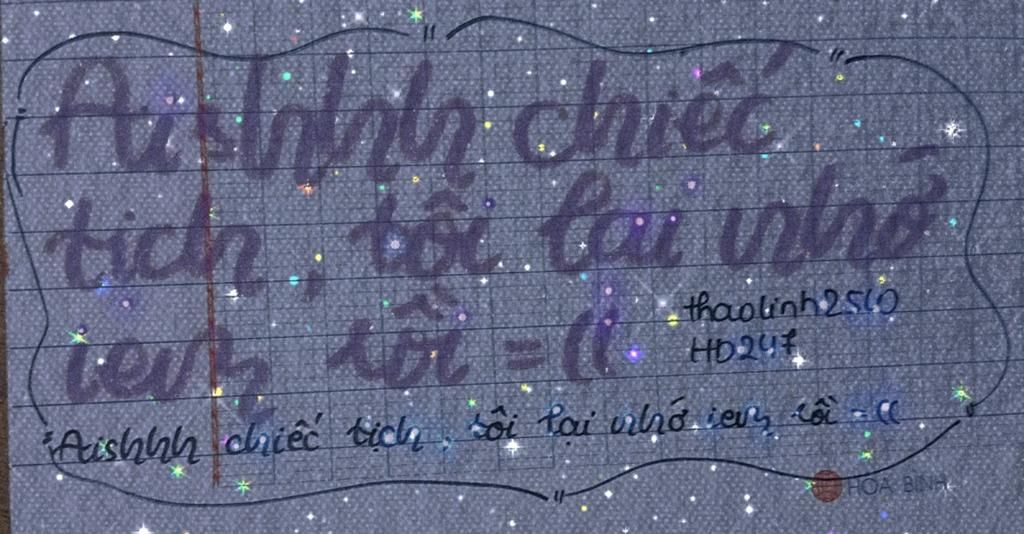 Aishhh chiếc
tịch, tôi lại nhớ
iem rồi =((
thaolinh2510
HD247
Aishhh chiếc tịch, tôi lại nhớ iem rồi =((
HOA BINH